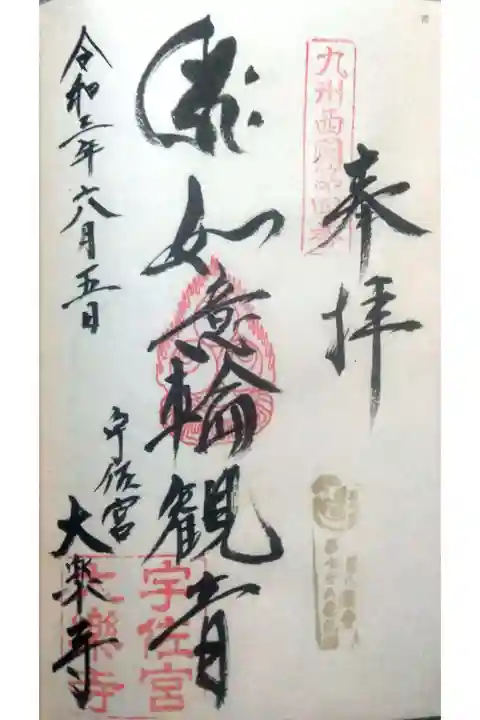 九州西国第四番
奉拝
如意輪観音
令和三年六月五日
宇佐宮
大楽寺
宇佐宮
大樂寺